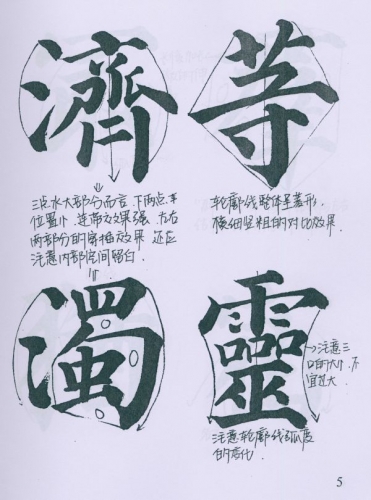 濟
等
三点水大部分而言,下两点车
位置小,连带效果强.左右
两部分的穿插效果,还应
注意内部空间留白.
轮廓线整体呈菱形,
横细竖粗的对比效果.
濁
靈
注意三
口的大小,不
宜过大.
注意轮廓线弧度
的变化.
5